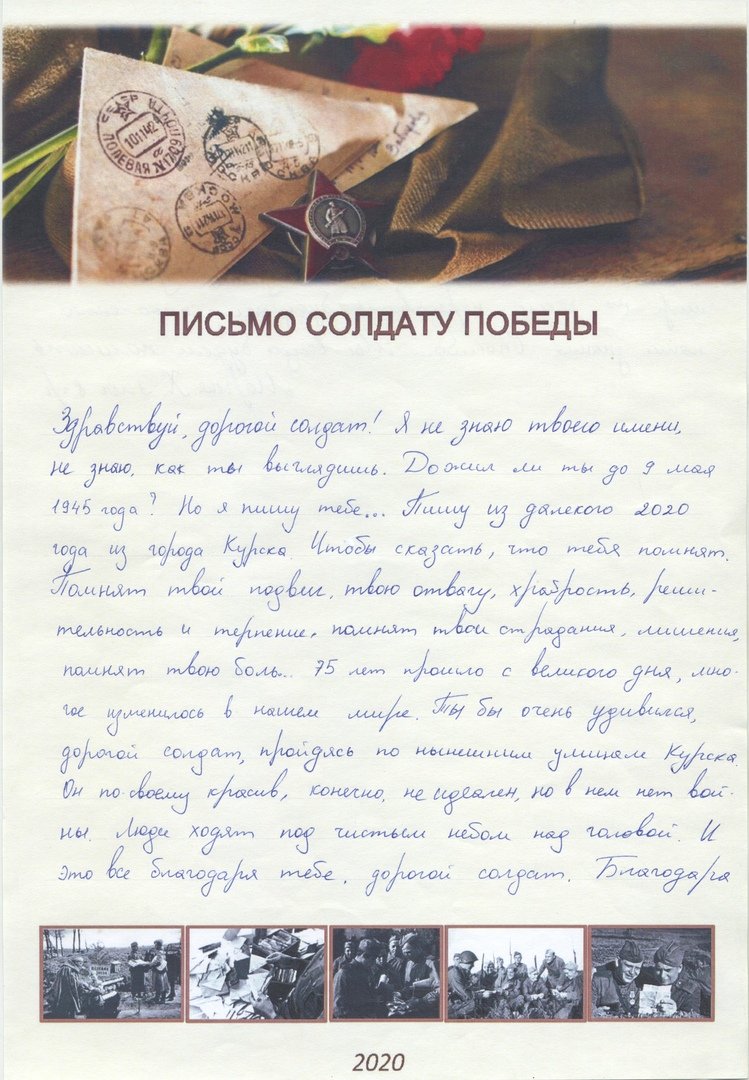 ПОЛЕВАЯ ПОЧТА
10 11 42
МОСКВА
ПИСЬМО СОЛДАТУ ПОБЕДЫ
Здравствуй, дорогой солдат! Я не знаю твоего имени,
не знаю, как ты выглядишь. Дожил ли ты до 9 мая
1945 года? Но я пишу тебе... Пишу из далекого 2020
года из города Курска. Чтобы сказать, что тебя помнят.
Помнят твой подвиг, твою отвагу, храбрость, реши-
тельность и терпение, помнят твои страдания, лишения,
помнят твою боль... 75 лет прошло с великого дня, мно-
гое изменилось в нашем мире. Ты бы очень удивился,
дорогой солдат, пройдясь по нынешним улицам Курска.
Он по-своему красив, конечно, не идеален, но в нем нет вой-
ны. Люди ходят под чистым небом над головой. И
это все благодаря тебе, дорогой солдат. Благодара
2020